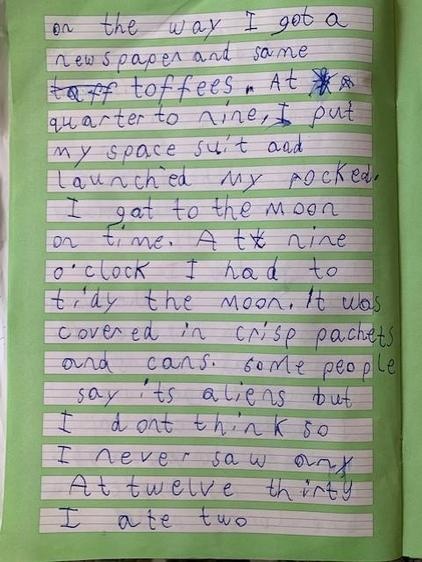 on the way I got a
newspaper and some
toffees. At
quarter to nine, I put
my space suit and
launched my rocked.
I got to the moon
on time. At nine
o'clock I had to
tidy the moon. It was
covered in crisp pachets
and cans. some people
say its aliens but
I dont think so
I never saw any
At twelve thirty
I ate two